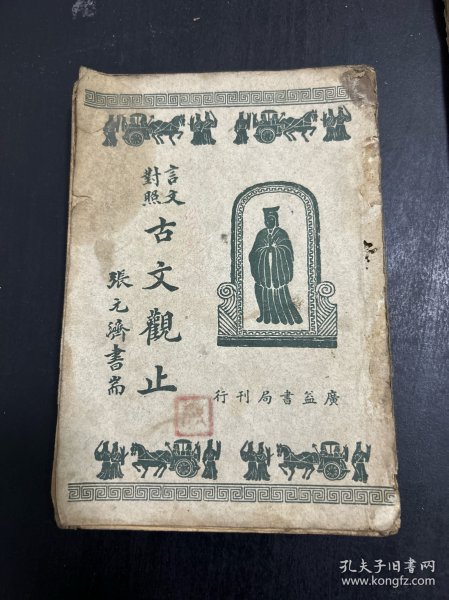 言文
對照
古文觀止
張元濟書耑
廣益書局刊行
孔夫子旧书网
www.kongfz.com